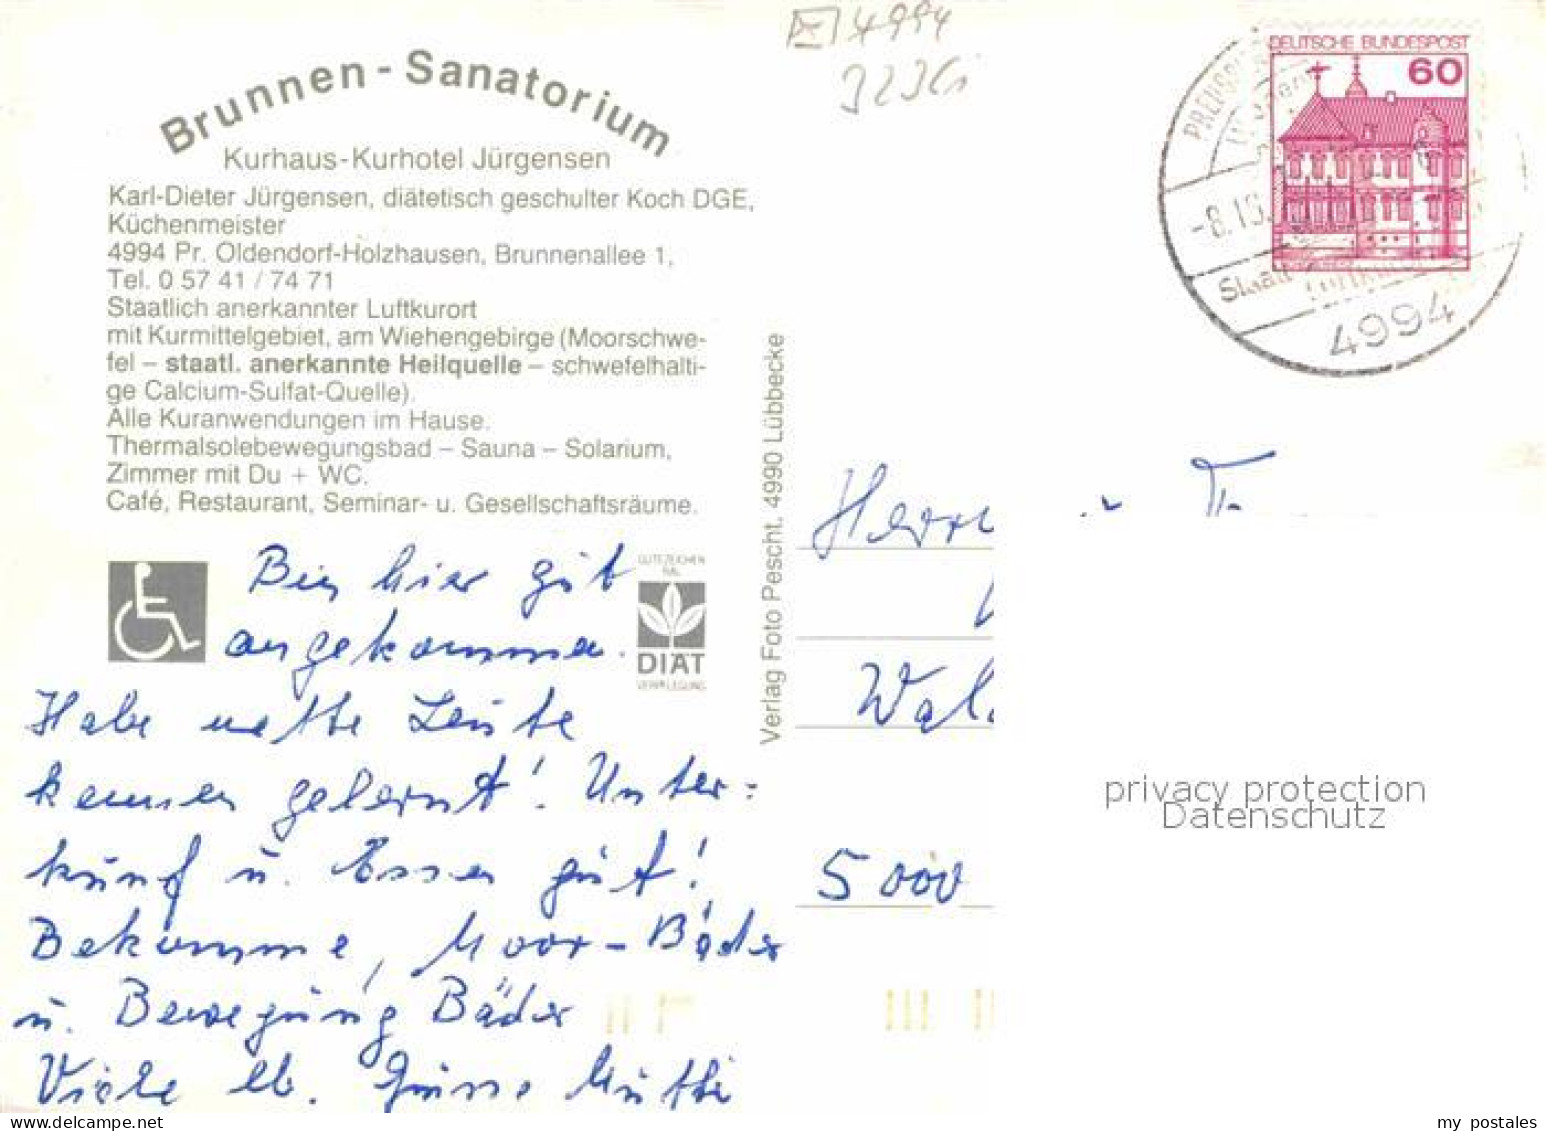 Brunnen-Sanatorium
Kurhaus-Kurhotel Jürgensen
Karl-Dieter Jürgensen, diätetisch geschulter Koch DGE,
Küchenmeister
4994 Pr. Oldendorf-Holzhausen, Brunnenallee 1,
Tel. 0 57 41 / 74 71
Staatlich anerkannter Luftkurort
mit Kurmittelgebiet, am Wiehengebirge (Moorschwe-
fel – staatl. anerkannte Heilquelle – schwefelhalti-
ge Calcium-Sulfat-Quelle).
Alle Kuranwendungen im Hause.
Thermalsolebewegungsbad – Sauna – Solarium,
Zimmer mit Du + WC.
Café, Restaurant, Seminar- u. Gesellschaftsräume.
GÜTEZEICHEN
RAL
DIÄT
VERPFLEGUNG
Bin hier gut
angekommen.
Habe nette Leute
kennen gelernt! Unter=
kunf u. Essen gut!
Bekomme, Moor-Bäder
u. Bewegung Bäder
Viele lb. Grüsse Mutti
Verlag Foto Pescht, 4990 Lübbecke
4994
DEUTSCHE BUNDESPOST
60
-8.10.
Staatl
4994
Herrn
Wal
5000
privacy protection
Datenschutz
my postales